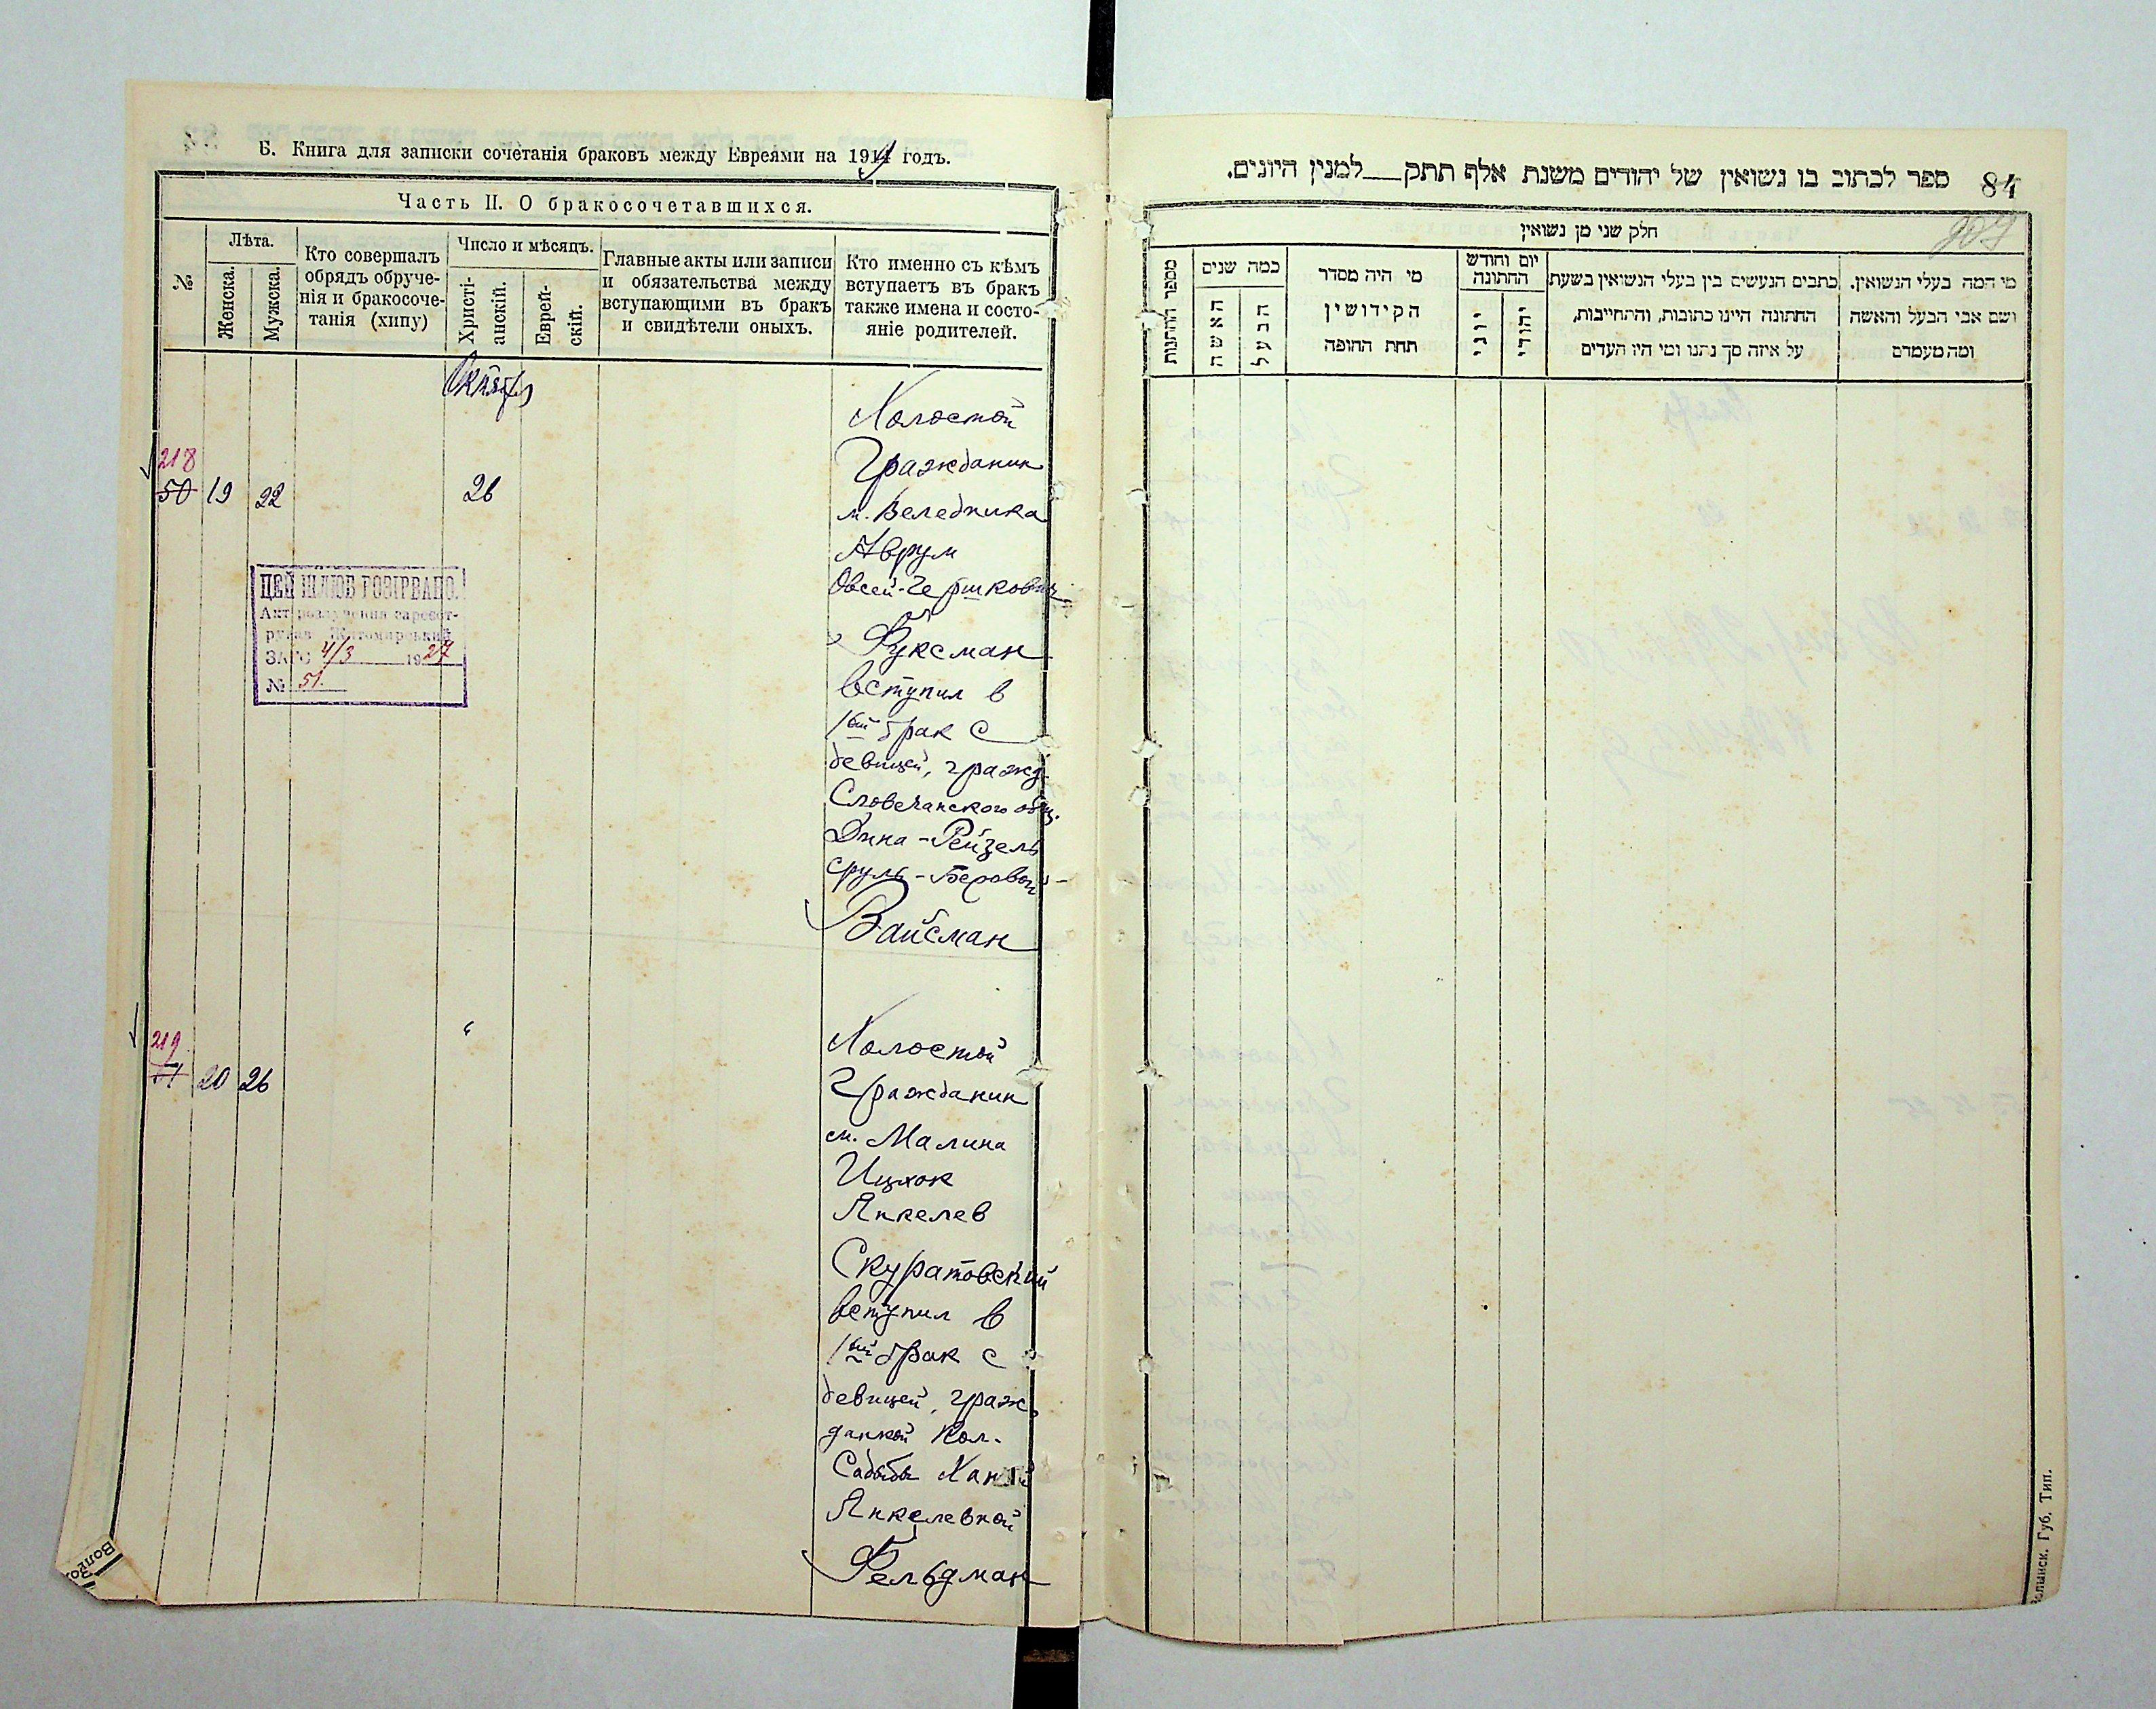 Б. Книга для записки сочетанія браковъ между Евреями на 191 годъ.
Часть II. О бракосочетавшихся.
№
Лѣта.
Женска.
Мужска.
Кто совершалъ
обрядъ обруче-
нія и бракосоче-
танія (хипу)
Число и мѣсяцъ.
Христі-
анскій.
Еврей-
скій.
Главные акты или записи
и обязательства между
вступающими въ бракъ
и свидѣтели оныхъ.
Кто именно съ кѣмъ
вступаетъ въ бракъ
также имена и состо-
яніе родителей.
218
50 19 22 26
Холостой
Гражданин
м. Веледника
Аврум
Овсей-Гершкович
Фуксман
вступил в
1ый брак с
девицей, гражд.
Словечанского общ.
Дина-Рейзель
Сруль-Беровой
Вайсман
ЦЕЙ ШЛЮБ РОЗІРВАНО.
Акт розлучення зареєст-
рував Житомирський
ЗАГС 4/3 1927
№ 51.
219
51 20 26 "
Холостой
Гражданин
м. Малина
Ицхок
Янкелев
Скуратовский
вступил в
1ый брак с
девицей, граж-
данкой Кол.
Садыбы Ханой
Янкелевной
Фельдман
ספר לכתוב בו נשואין של יהודים משנת אלף תתק למנין היונים.
84
חלק שני מן נשואין
מספר החתנות
כמה שנים
האשה
הבעל
מי היה מסדר
הקידושין
תחת החופה
יום וחודש
החתונה
יוני
יהודי
כתבים הנעשים בין בעלי הנשואין בשעת
החתונה היינו כתובות, והתחייבות,
על איזה סך נתנו ומי היו העדים
מי המה בעלי הנשואין.
ושם אבי הבעל והאשה
ומה מעמדם
Волынск. Губ. Тип.